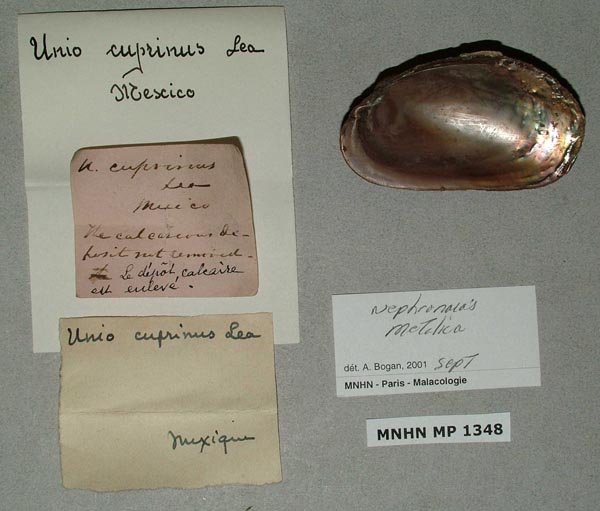 Unio cuprinus Lea
Mexico
U. cuprinus
Lea
Mexico
The calcareous de-
posit not removed.
Le dépôt calcaire
est enlevé.
Unio cuprinus Lea
Mexique
Nephronaias
Metallica
dét. A. Bogan, 2001 Sept
MNHN - Paris - Malacologie
MNHN MP 1348